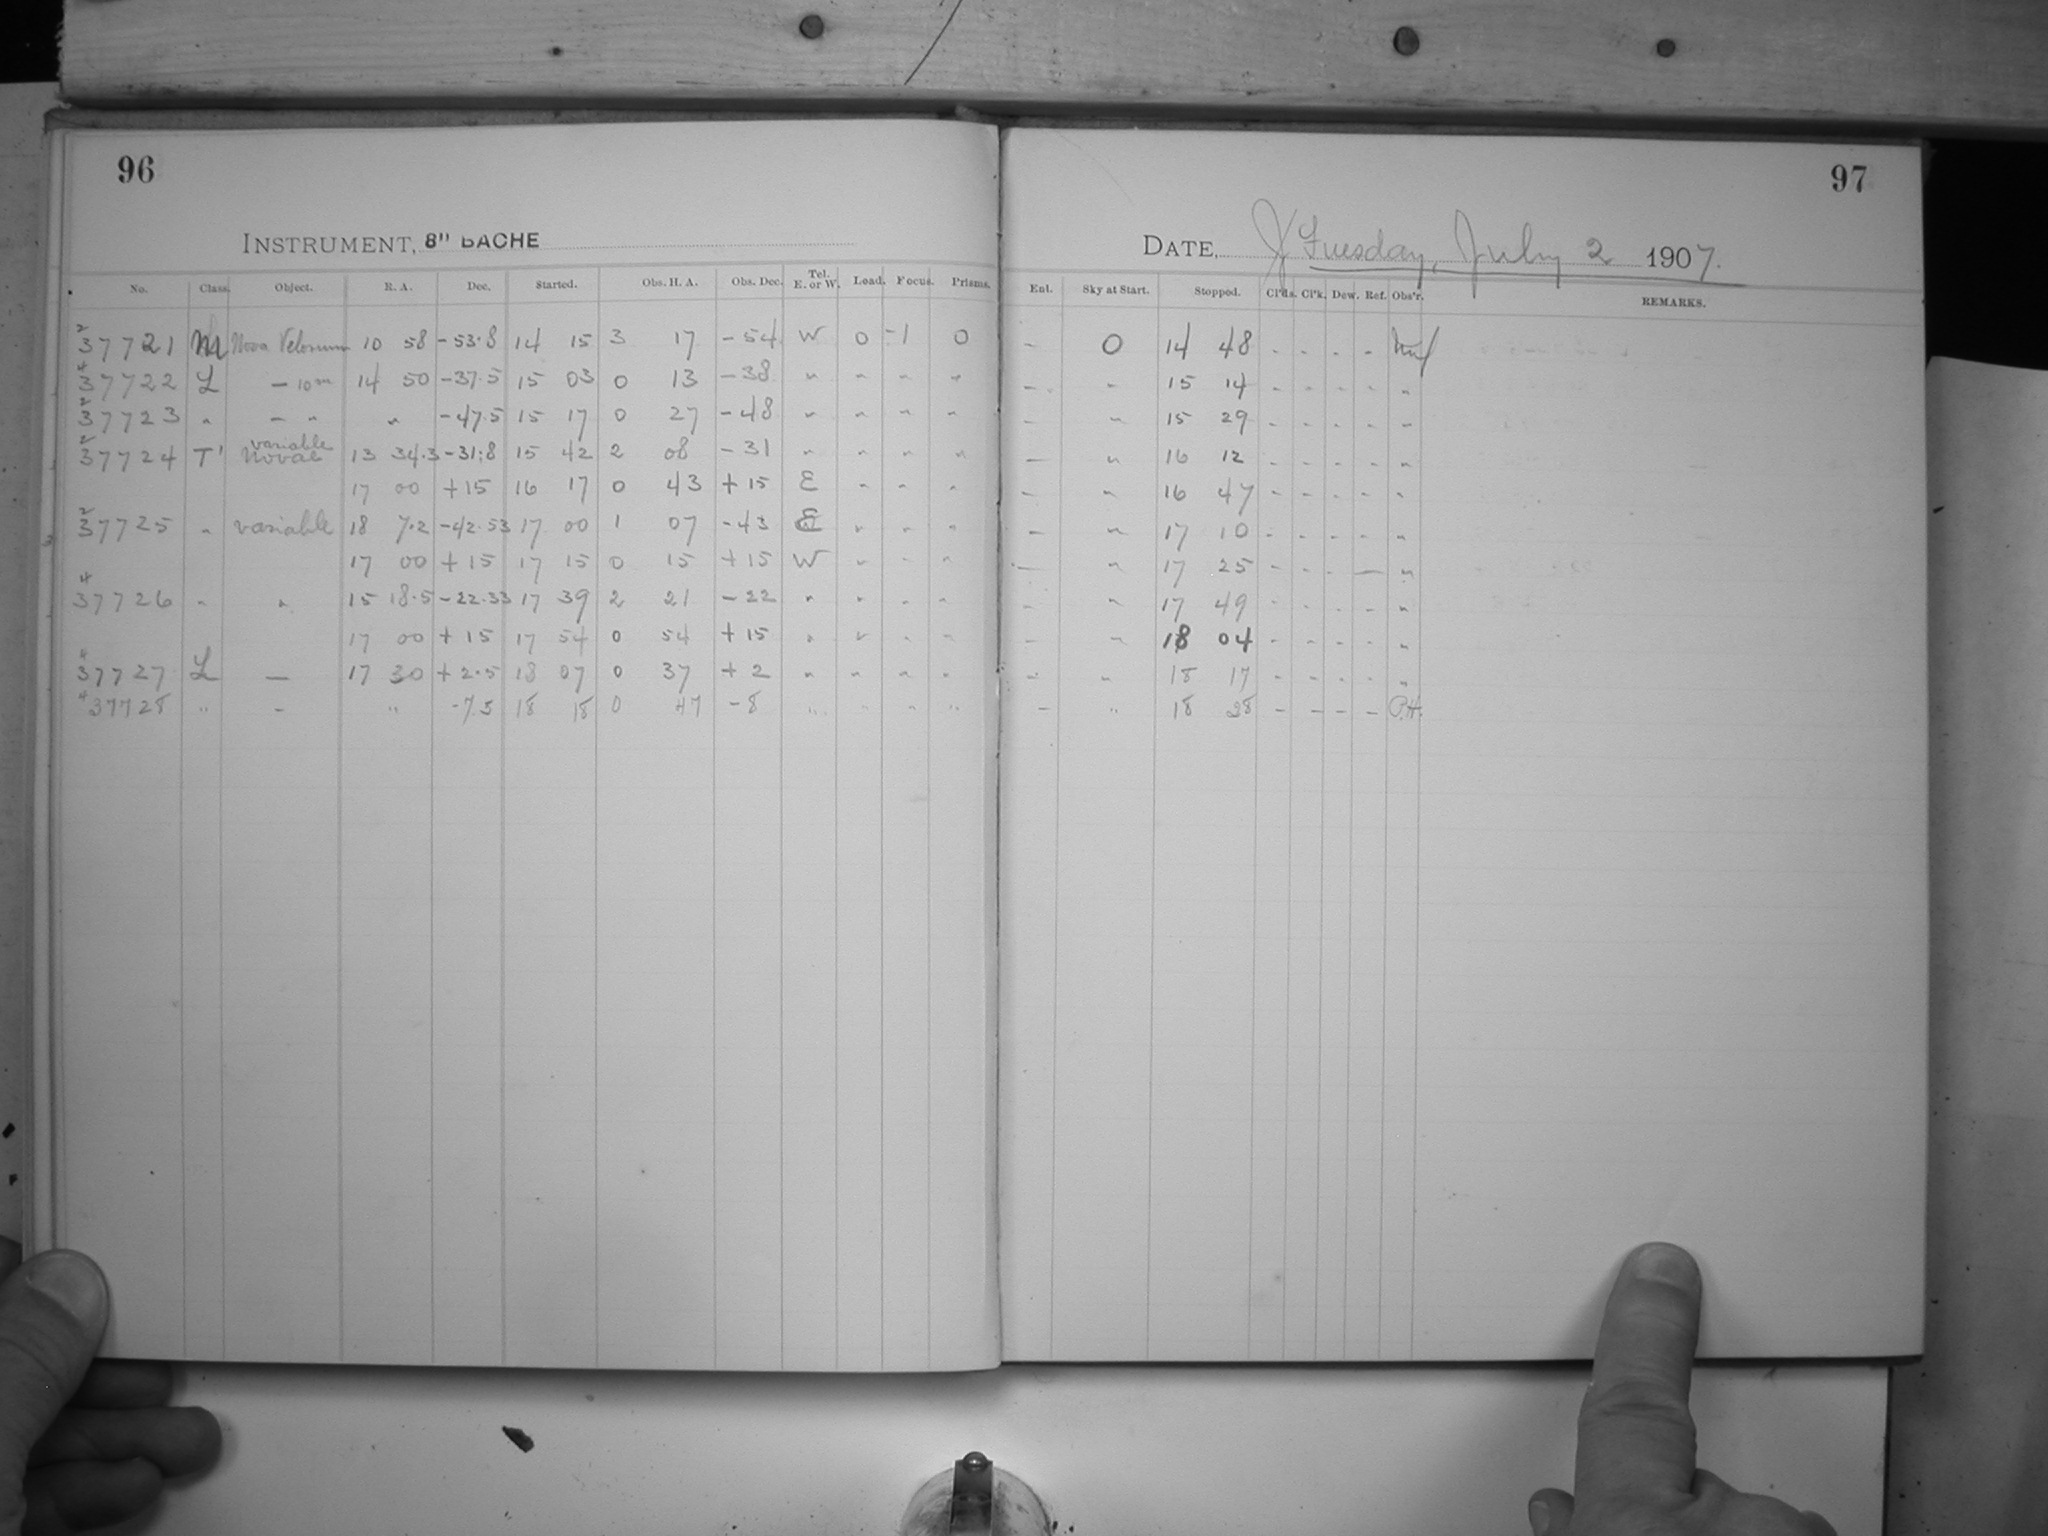 96
INSTRUMENT, 8" BACHE
No. Class. Object. R. A. Dec. Started. Obs. H. A. Obs. Dec. Tel. E. or W. Load. Focus. Prisms.
2 37721 M Nova Velorum 10 58 -53.8 14 15 3 17 -54 W 0 -1 0
4 37722 L — 10m 14 50 -37.5 15 03 0 13 -38 " " " "
2 37723 " — " " -47.5 15 17 0 27 -48 " " " "
variable
2 37724 T' novae 13 34.3 -31.8 15 42 2 08 -31 " " " "
17 00 +15 16 17 0 43 +15 E " " "
2 37725 " variable 18 7.2 -42.53 17 00 1 07 -43 E " " "
17 00 +15 17 15 0 15 +15 W " " "
4 37726 " " 15 18.5 -22.33 17 39 2 21 -22 " " " "
17 00 +15 17 54 0 54 +15 " " " "
4 37727 L — 17 30 +2.5 18 07 0 37 +2 " " " "
4 37728 " — " -7.5 18 18 0 47 -8 " " " "
97
DATE, Tuesday, July 2 1907.
Enl. Sky at Start. Stopped. Cl'ds. Cl'k. Dew. Ref. Obs'r. REMARKS.
- 0 14 48 - - - -
- " 15 14 - - - - "
- " 15 29 - - - - "
— " 16 12 - - - - "
- " 16 47 - - - - "
- " 17 10 - - - - "
— " 17 25 - - - — "
- " 17 49 - - - - "
- " 18 04 - - - - "
- " 18 17 - - - - "
- " 18 28 - - - - P.H.